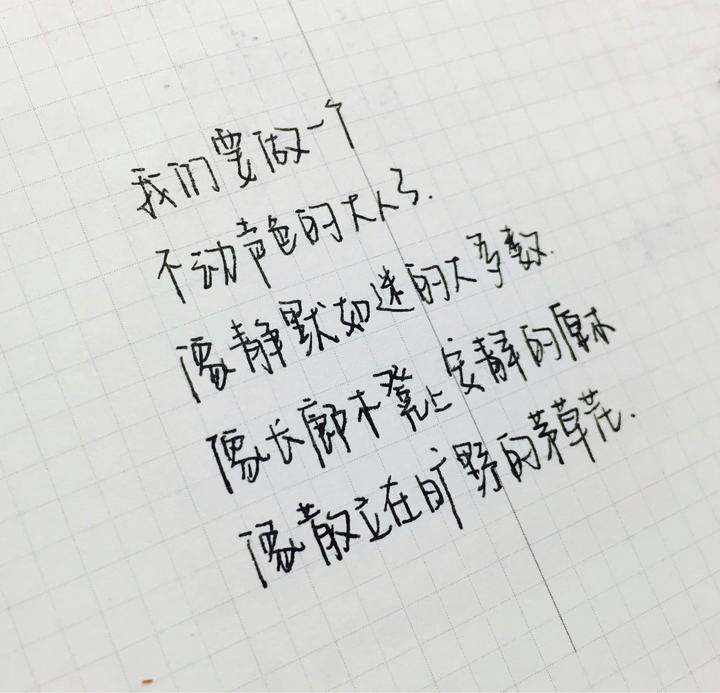 我们要做一个
不动声色的大人了.
像静默如迷的大多数.
像长廊木凳上安静的原木
像散立在旷野的茅草花.